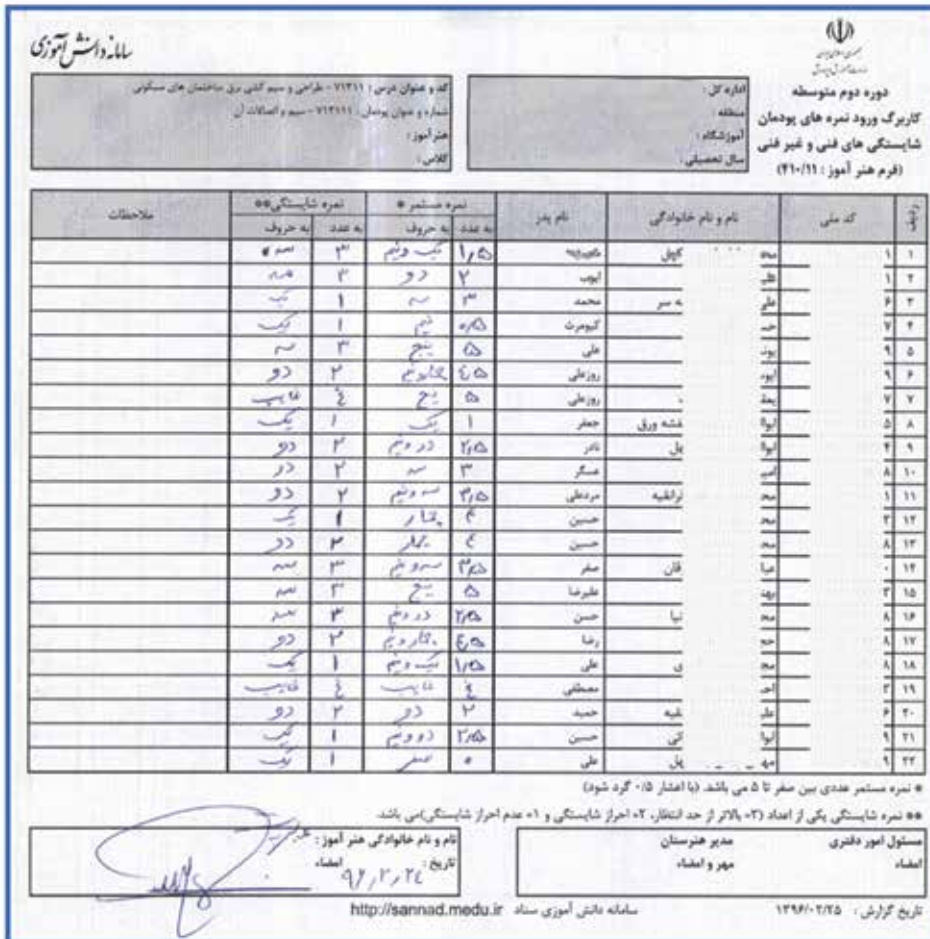 سامانه دانش آموزی
جمهوری اسلامی ایران
وزارت آموزش و پرورش
دوره دوم متوسطه
کاربرگ ورود نمره های پودمان
شایستگی های فنی و غیر فنی
(فرم هنر آموز : ۴۱۰/۱۱)
اداره کل :
منطقه :
آموزشگاه :
سال تحصیلی :
کد و عنوان درس : ۷۱۳۱۱ - طراحی و سیم کشی برق ساختمان های مسکونی
شماره و عنوان پودمان : ۷۱۳۱۱۱ - سیم و اتصالات آن
هنرآموز :
کلاس :
ردیف کد ملی نام و نام خانوادگی نام پدر نمره مستمر * نمره شایستگی** ملاحظات
به عدد به حروف به عدد به حروف
۱ ۱ محـ کهل ۱٫۵ یک و نیم ۳ سه
۲ ۱ علیـ ایوب ۲ دو ۳ سه
۳ ۶ علی ه سر محمد ۳ سه ۱ یک
۴ ۷ کیومرث ۰٫۵ نیم ۱ یک
۵ ۹ یونـ علی ۵ پنج ۳ سه
۶ ۹ ابوـ روزعلی ۴٫۵ چهارونیم ۲ دو
۷ ۷ روزعلی ۵ پنج غ غایب
۸ ۵ ابوالـ قشه ورق جعفر ۱ یک ۱ یک
۹ ۴ ابوالـ یل نادر ۲٫۵ دو و نیم ۲ دو
۱۰ ۸ امیـ عسگر ۳ سه ۲ دو
۱۱ ۱ محـ مردعلی ۳٫۵ سه و نیم ۲ دو
۱۲ ۳ محـ حسین ۴ چهار ۱ یک
۱۳ ۸ محـ حسین ۴ چهار ۲ دو
۱۴ ۰ قان صفر ۳٫۵ سه و نیم ۳ سه
۱۵ ۳ علیرضا ۵ پنج ۳ سه
۱۶ ۸ محـ نیا حسن ۲٫۵ دو و نیم ۳ سه
۱۷ ۸ رضا ۴٫۵ چهار و نیم ۲ دو
۱۸ ۸ محـ ی علی ۱٫۵ یک و نیم ۱ یک
۱۹ ۳ احـ مصطفی غ غایب غ غایب
۲۰ ۶ علیـ حمید ۲ دو ۲ دو
۲۱ ۹ ابوالـ حسین ۲٫۵ دو و نیم ۱ یک
۲۲ ۹ یل علی ۰ صفر ۱ یک
* نمره مستمر عددی بین صفر تا ۵ می باشد. (با اعشار ۰/۵ گرد شود)
** نمره شایستگی یکی از اعداد (۳= بالاتر از حد انتظار، ۲= احراز شایستگی و ۱= عدم احراز شایستگی)می باشد.
مسئول امور دفتری مدیر هنرستان
امضاء مهر و امضاء
نام و نام خانوادگی هنر آموز :
تاریخ : امضاء
۹۶٫۲٫۲۴
تاریخ گزارش : ۱۳۹۶/۰۲/۲۵ سامانه دانش آموزی سناد http://sannad.medu.ir